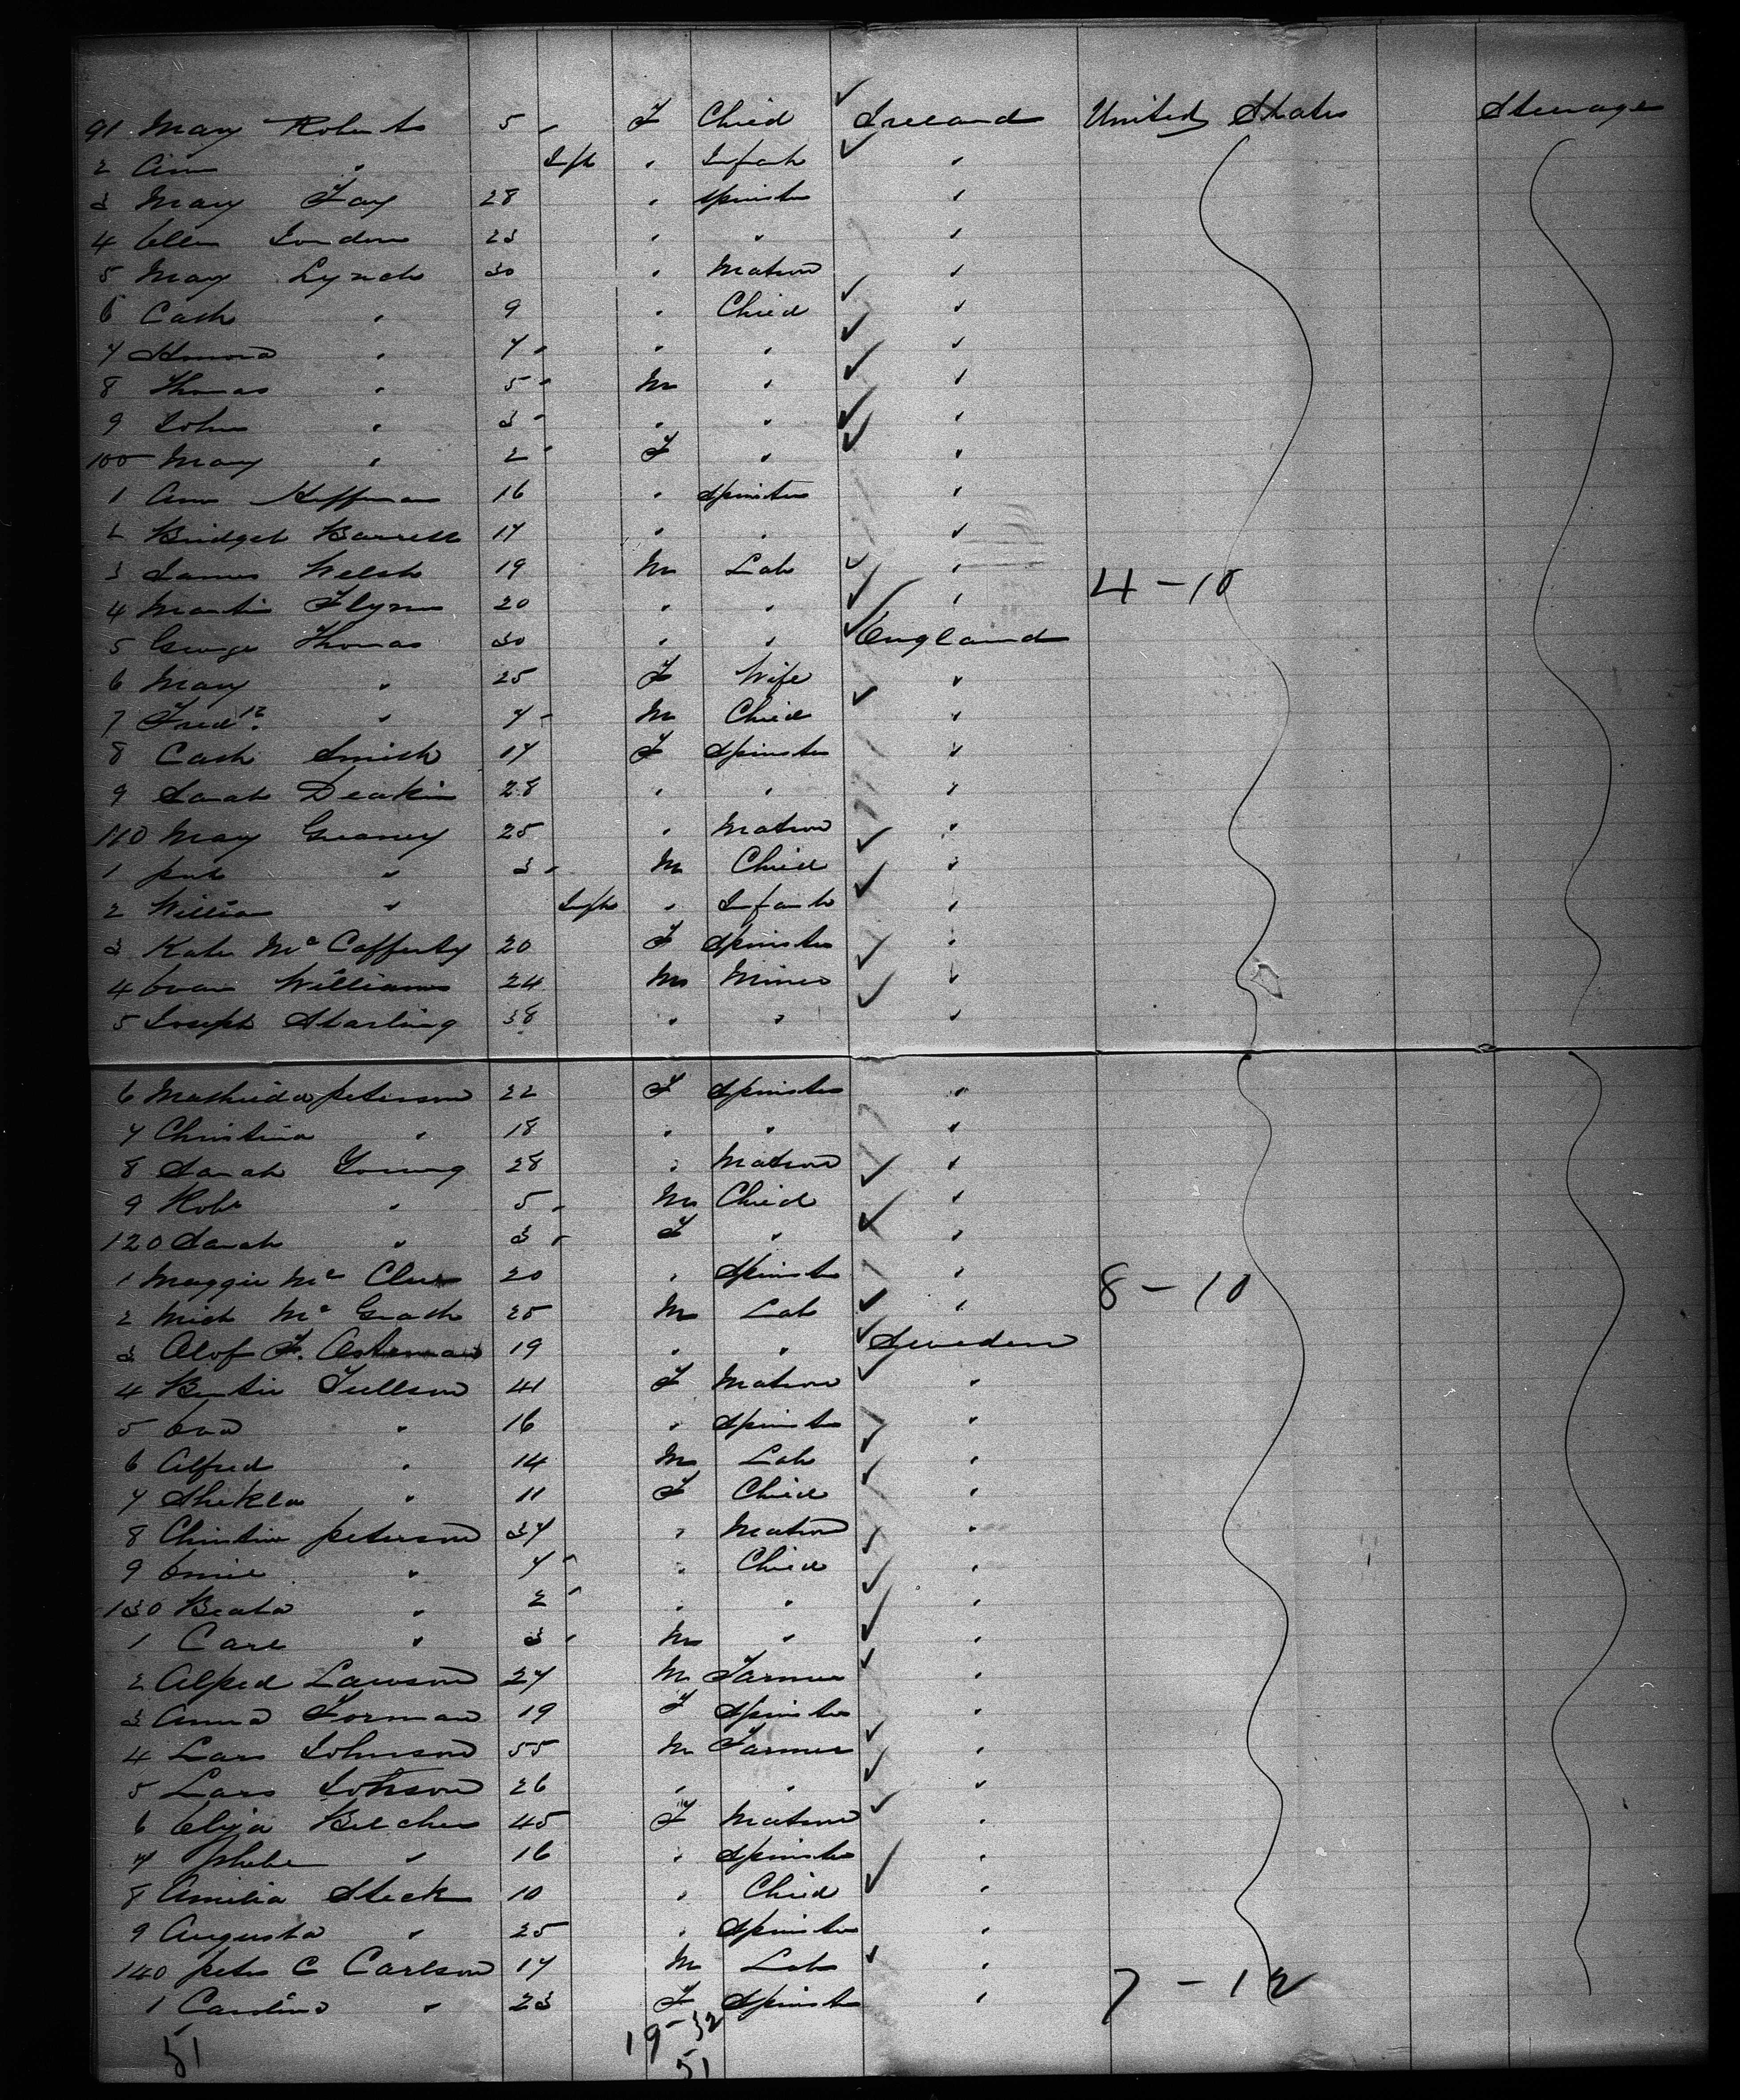 91 Mary Roberts 5 F Child Ireland United States Steerage
2 Ann " Inft " Infant "
3 Mary Fay 28 " Spinster "
4 Ellen 23 " " "
5 Mary Lynch 30 " Matron "
6 Cath " 9 " Child "
7 Honora " 7 " " "
8 Thomas " 5 M " "
9 John " 3 " " "
100 Mary " 2 F " "
1 Ann Heffernan 16 " Spinster "
2 Bridget Barrett 17 " " "
3 James Welsh 19 M Lab "
4 Martin Flynn 20 " " " 4-10
5 George Thomas 30 " " England
6 Mary " 25 F Wife "
7 Fredk " 7 M Child "
8 Cath Smith 17 F Spinster "
9 Sarah Deakin 28 " " "
110 Mary Greaney 25 " Matron "
1 Pat " 3 M Child "
2 William " Inft " Infant "
3 Kate Mc Cafferty 20 F Spinster "
4 Evan Williams 24 M Miner "
5 Joseph Starling 38 " " "
6 Mathilda Peterson 22 F Spinster "
7 Christina " 18 " " "
8 Sarah Young 28 " Matron "
9 Robt " 5 M Child "
120 Sarah " 3 F " "
1 Maggie Mc 20 " Spinster "
2 Mich Mc Grath 25 M Lab " 8-10
3 Olof F. Osterman 19 " " Sweden
4 41 F Matron "
5 Eva " 16 " Spinster "
6 Alfred " 14 M Lab "
7 " 11 F Child "
8 Christina Peterson 37 " Matron "
9 " 7 " Child "
130 Beata " 2 " " "
1 Carl " 3 M " "
2 Alfred Lawson 27 M Farmer "
3 Anna Forman 19 F Spinster "
4 Lars Johnson 55 M Farmer "
5 Lars Johnson 26 " " "
6 Eliza Belcher 45 F Matron "
7 Phebe " 16 " Spinster "
8 Amilia Steck 10 " Child "
9 Augusta " 25 " Spinster "
140 Peter C Carlson 17 M Lab "
1 Carolina " 23 F Spinster " 7-12
51 19-32
51